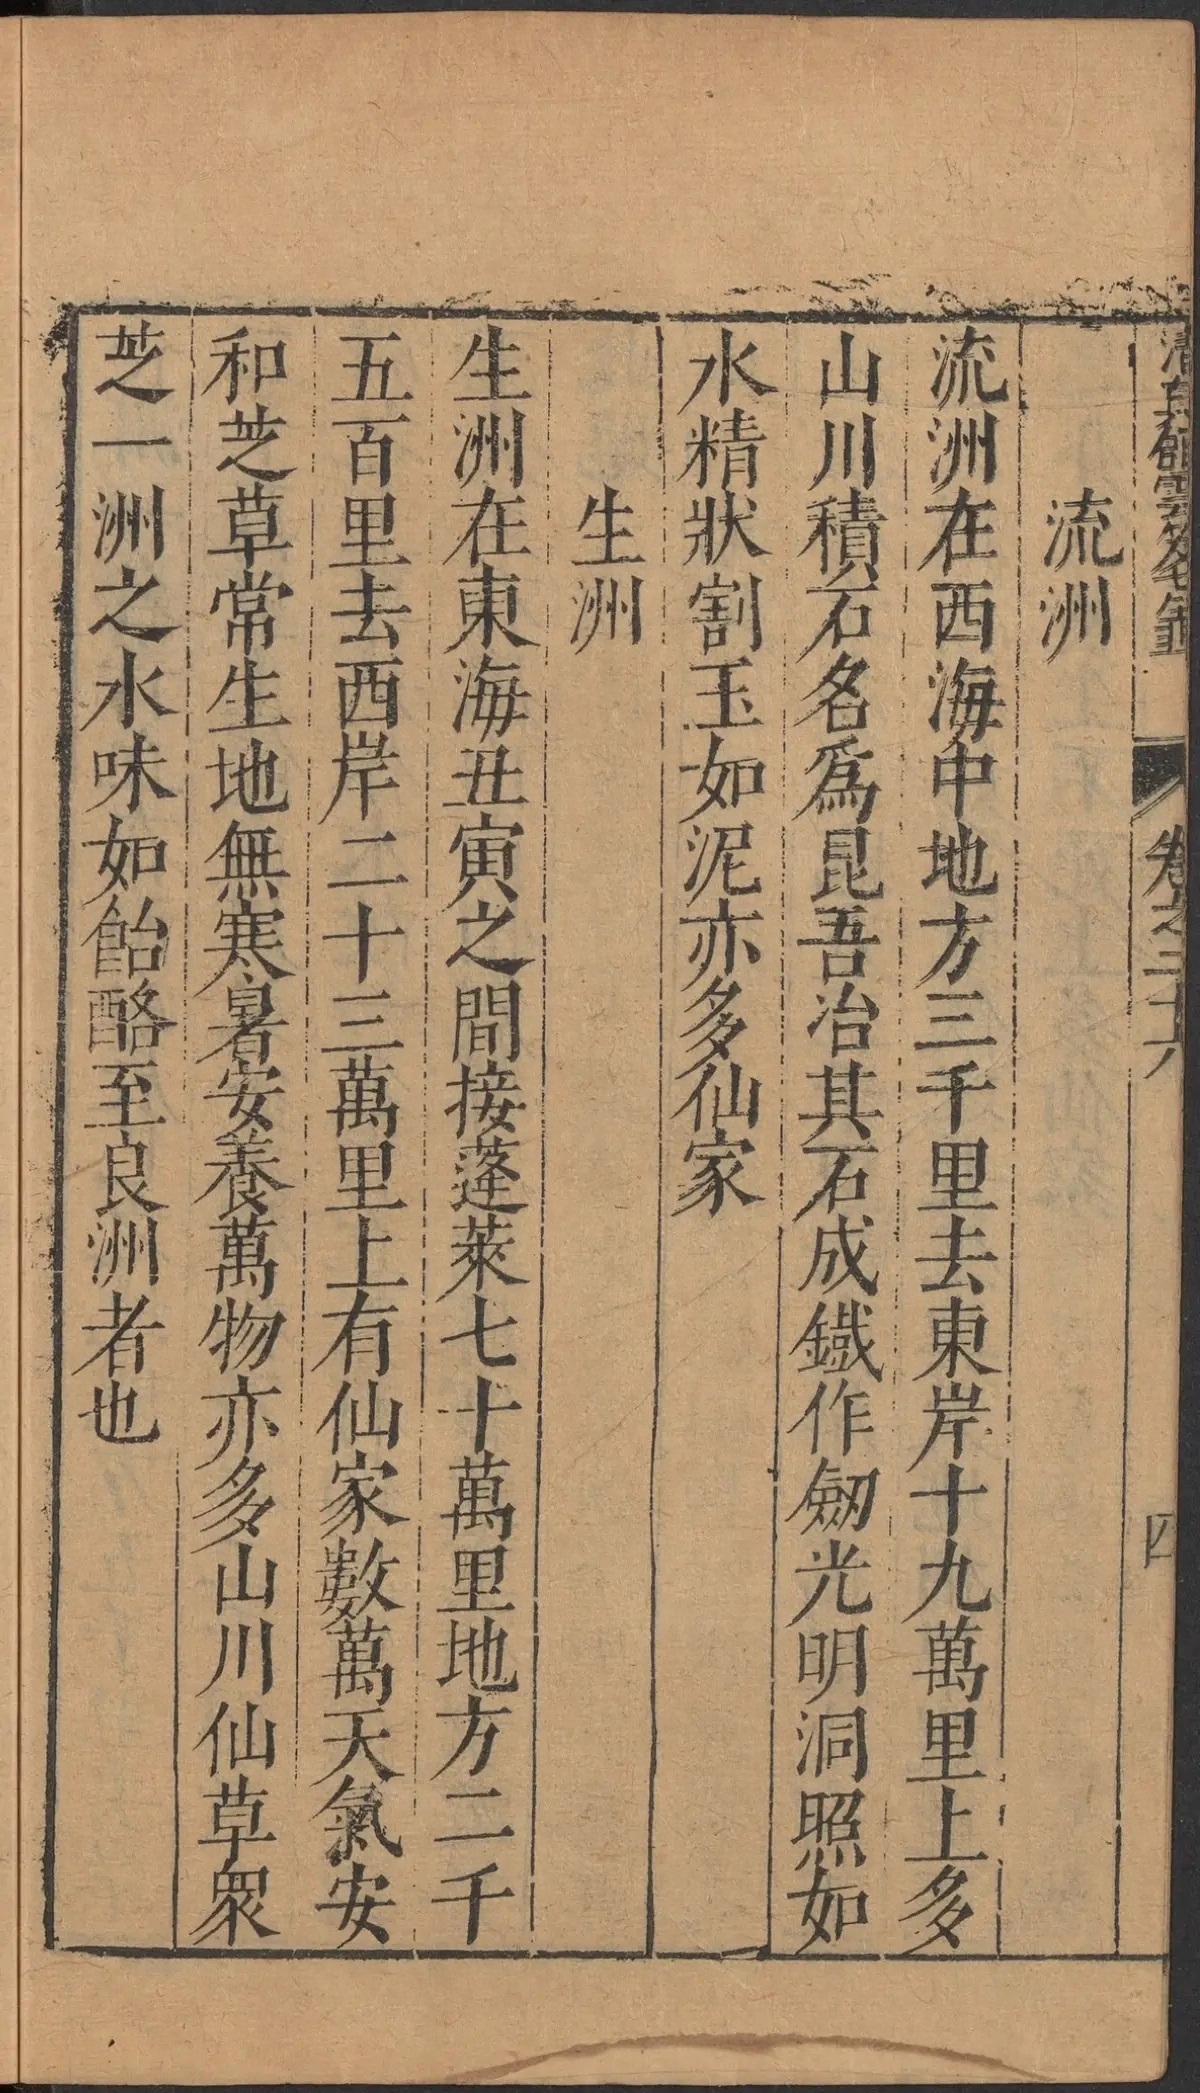 卷之二十六
四
流洲
流洲在西海中地方三千里去東岸十九萬里上多
山川積石名爲昆吾冶其石成鐵作劒光明洞照如
水精狀割玉如泥亦多仙家
生洲
生洲在東海丑寅之間接蓬萊七十萬里地方二千
五百里去西岸二十三萬里上有仙家數萬天氣安
和芝草常生地無寒暑安養萬物亦多山川仙草衆
芝一洲之水味如飴酪至良洲者也